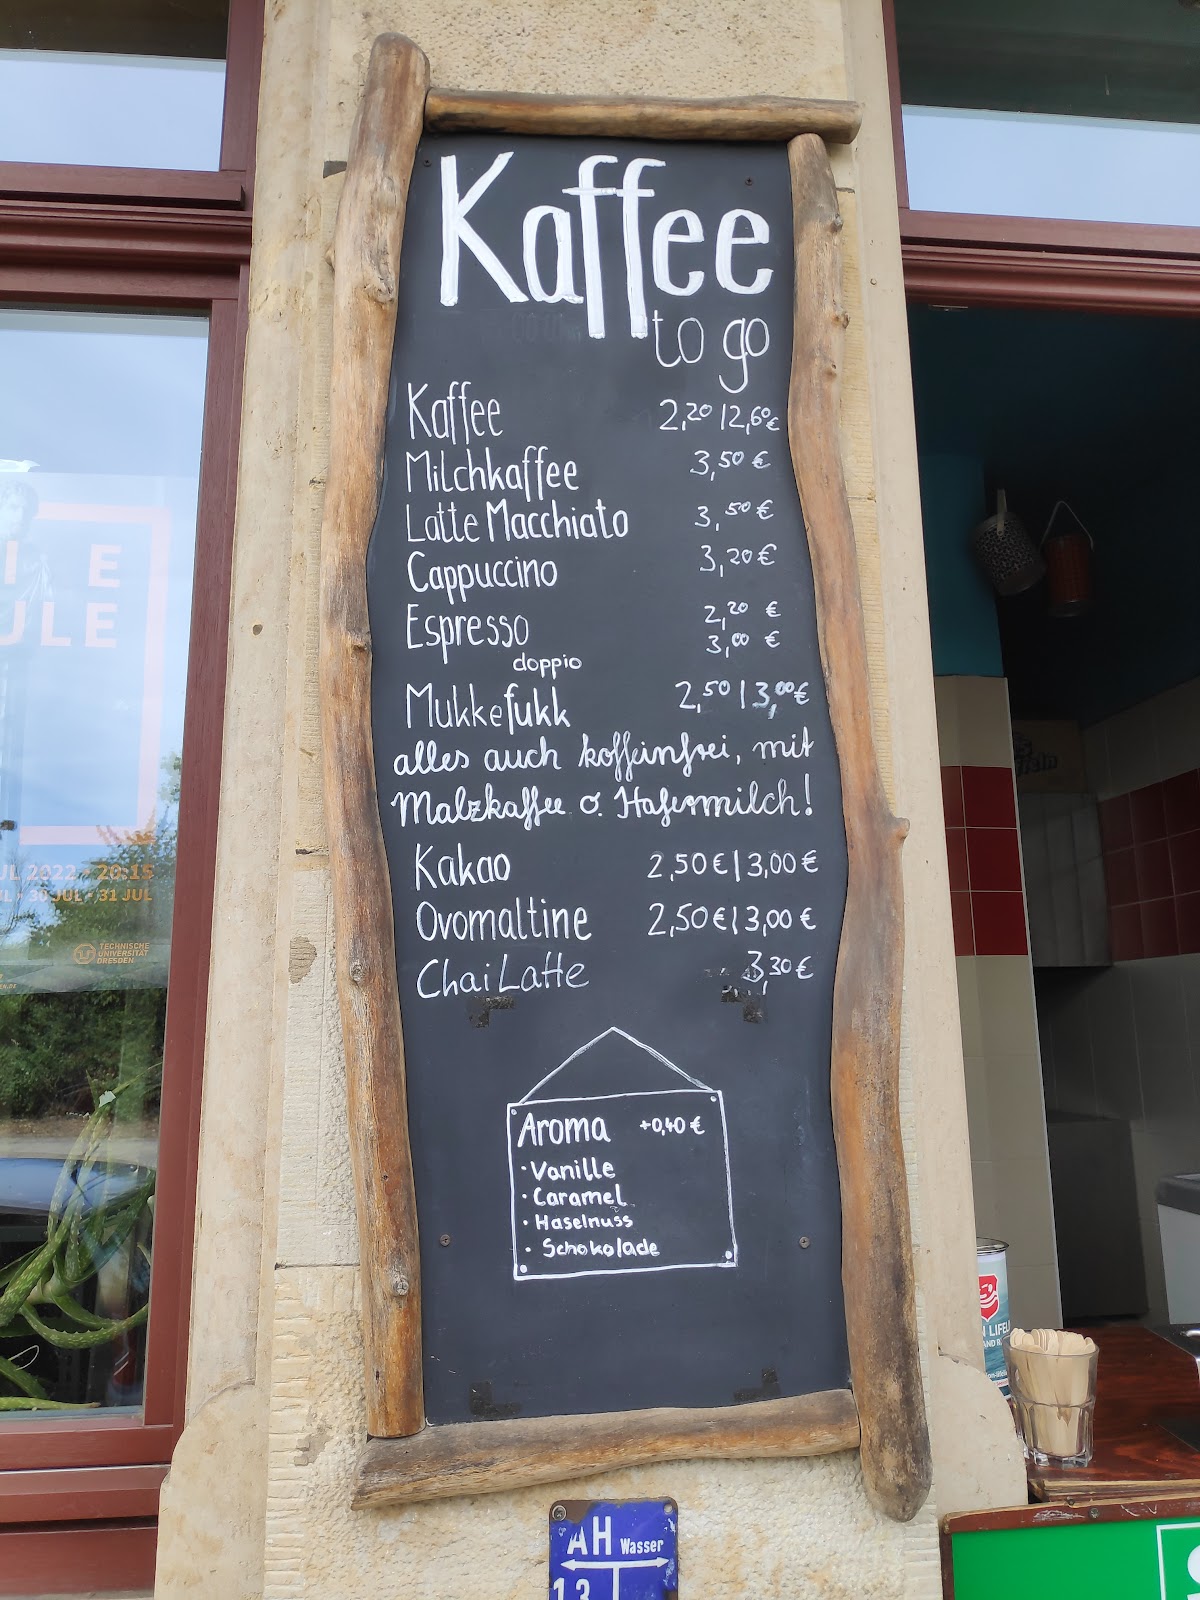 Kaffee
to go
Kaffee 2,20 | 2,60 €
Milchkaffee 3,50 €
Latte Macchiato 3,50 €
Cappuccino 3,20 €
Espresso 2,20 €
doppio 3,00 €
Mukkefukk 2,50 | 3,00 €
alles auch koffeinfrei, mit
Malzkaffee o. Hafermilch!
Kakao 2,50 € | 3,00 €
Ovomaltine 2,50 € | 3,00 €
Chai Latte 3,30 €
Aroma +0,40 €
· Vanille
· Caramel
· Haselnuss
· Schokolade
AH Wasser
13
I E
ULE
JUL 2022 · 20:15
30 JUL · 31 JUL
TECHNISCHE
UNIVERSITÄT
DRESDEN